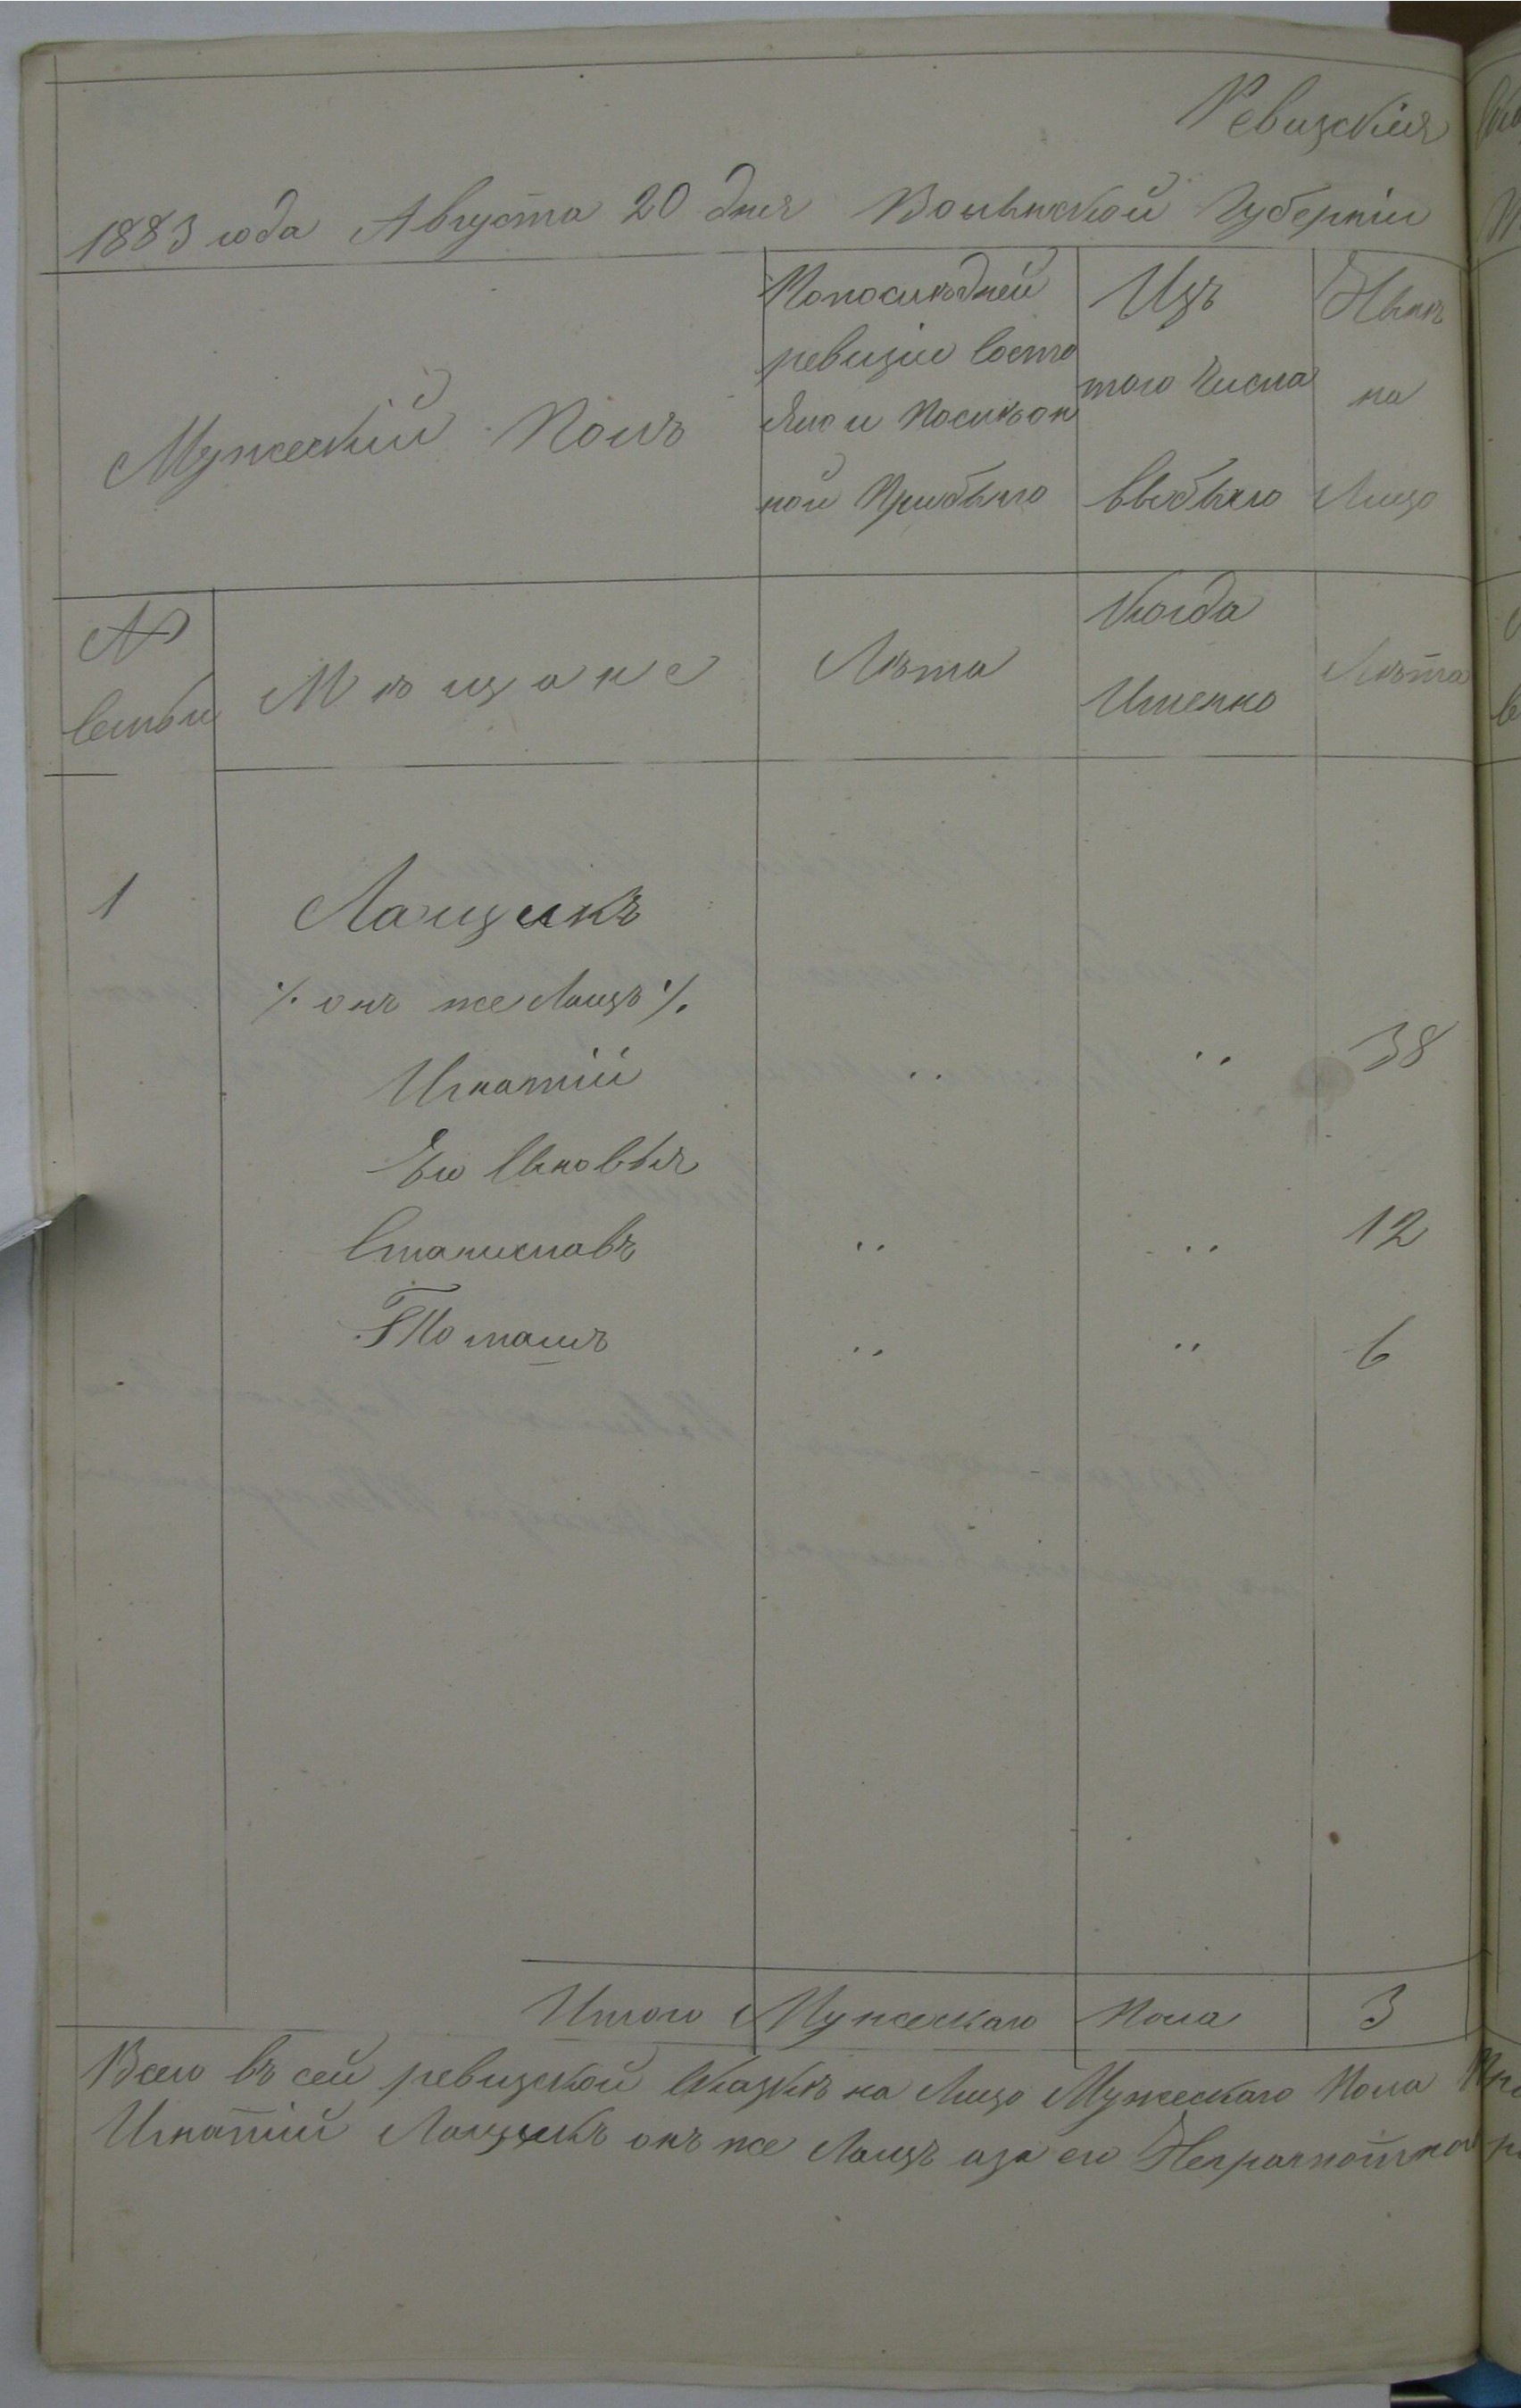 Ревизскія
1883 года Августа 20 дня Волынской Губерніи
Мужескій Полъ
По последней
ревизіи Состо
яло и После он
ной Прибыло
Изъ
того Числа
Выбыло
Ныне
на
Лицо
№
Семьи
Мѣщане
Лѣта
Когда
Именно
Лѣта
1
Лащикъ
·/. онъ же Лащъ ·/.
Игнатій 38
Его Сыновья
Станиславъ 12
Томашъ 6
Итого Мужескаго Пола 3
Всего въ сей ревизской Сказкѣ на Лицо Мужескаго Пола
Игнатій Лащикъ онъ же Лащъ аза его